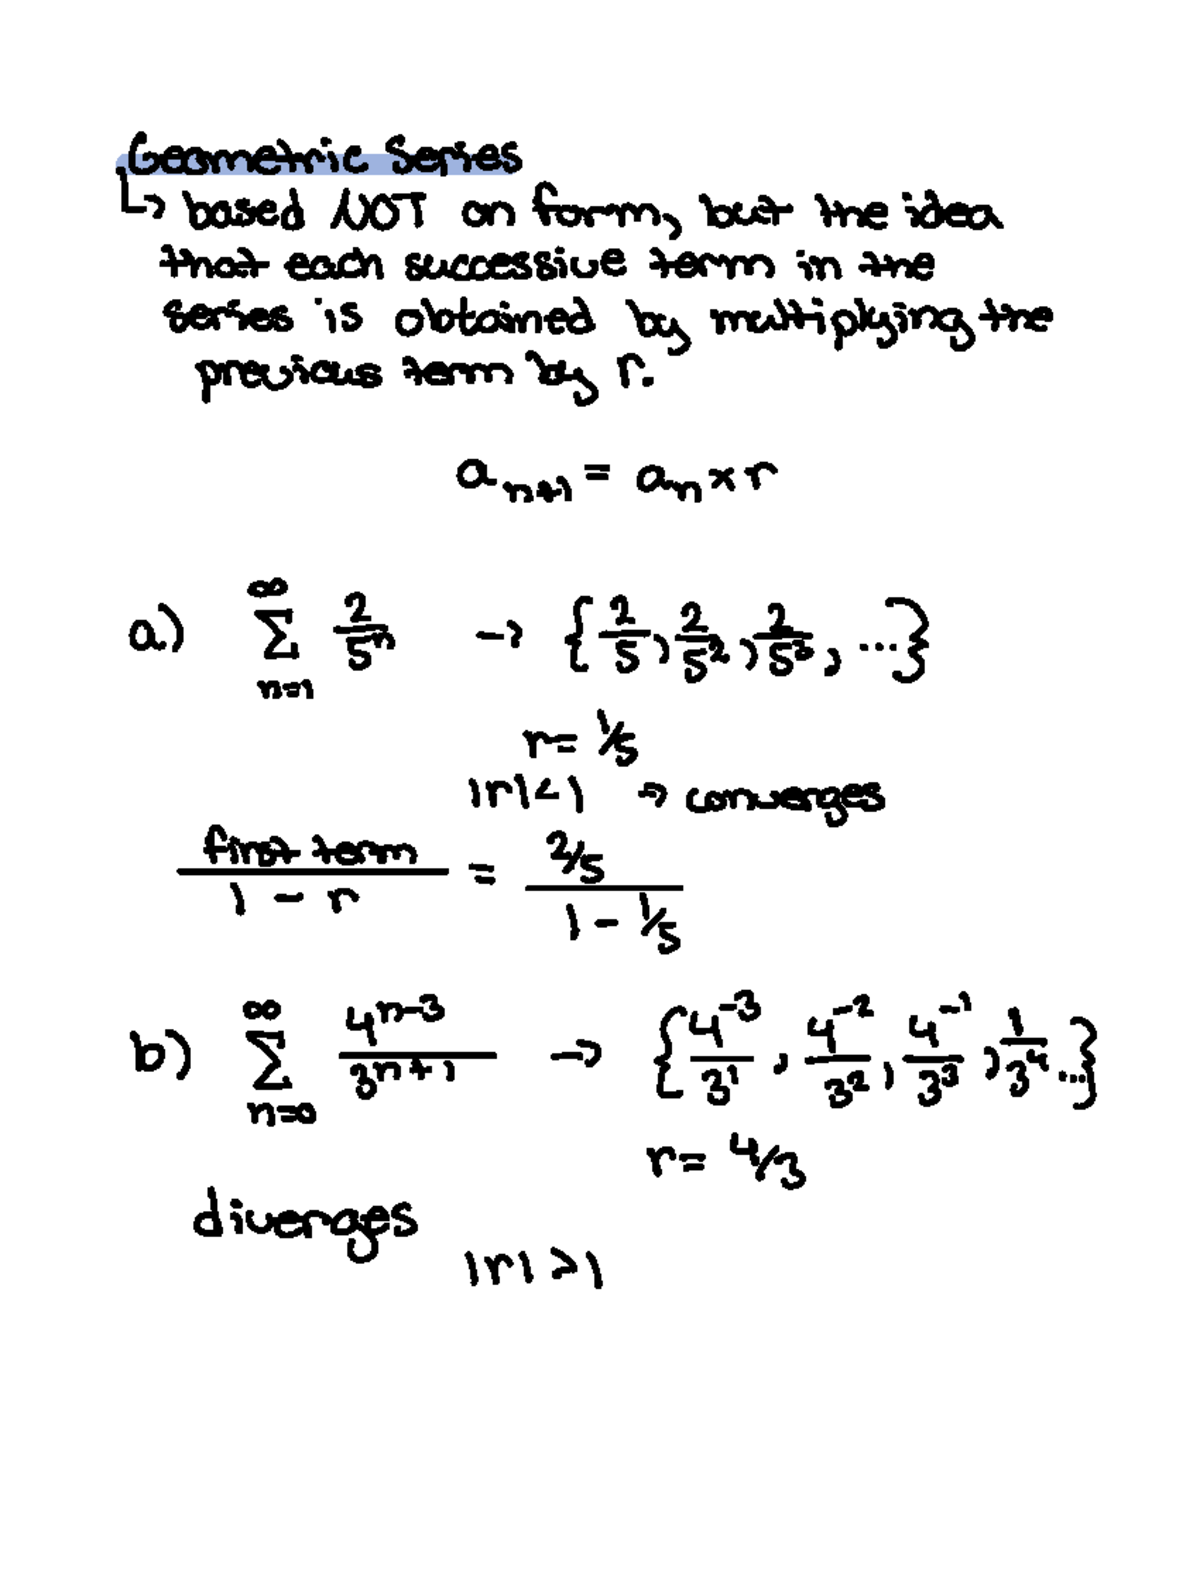 Geometric Series
↳ based NOT on form, but the idea
that each successive term in the
series is obtained by multiplying the
previous term by r.
aₙ₊₁ = aₙ × r
a) ∞ Σ n=1 2/5ⁿ → {2/5, 2/5², 2/5³, ...}
r = 1/5
|r| < 1 → converges
first term / 1 - r = 2/5 / 1 - 1/5
b) ∞ Σ n=0 4ⁿ⁻³/3ⁿ⁺¹ → {4⁻³/3¹, 4⁻²/3², 4⁻¹/3³, 1/3⁴ ...}
r = 4/3
diverges
|r| > 1